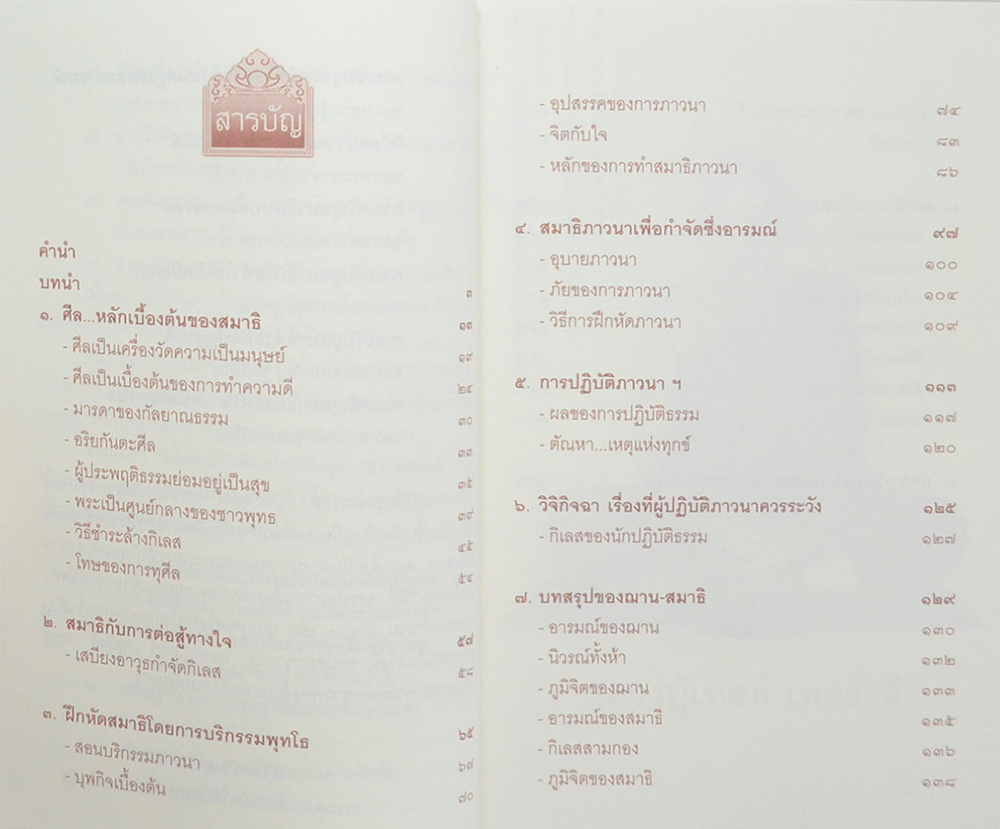 สารบัญ
คำนำ
บทนำ ๓
๑. ศีล...หลักเบื้องต้นของสมาธิ ๑๓
- ศีลเป็นเครื่องวัดความเป็นมนุษย์ ๑๙
- ศีลเป็นเบื้องต้นของการทำความดี ๒๔
- มารดาของกัลยาณธรรม ๓๐
- อริยกันตะศีล ๓๓
- ผู้ประพฤติธรรมย่อมอยู่เป็นสุข ๓๕
- พระเป็นศูนย์กลางของชาวพุทธ ๓๙
- วิธีชำระล้างกิเลส ๔๕
- โทษของการทุศีล ๕๔
๒. สมาธิกับการต่อสู้ทางใจ ๕๗
- เสบียงอาวุธกำจัดกิเลส ๕๘
๓. ฝึกหัดสมาธิโดยการบริกรรมพุทโธ ๖๕
- สอนบริกรรมภาวนา ๖๗
- บุพกิจเบื้องต้น ๗๐
- อุปสรรคของการภาวนา ๗๔
- จิตกับใจ ๘๓
- หลักของการทำสมาธิภาวนา ๘๖
๔. สมาธิภาวนาเพื่อกำจัดซึ่งอารมณ์ ๙๗
- อุบายภาวนา ๑๐๐
- ภัยของการภาวนา ๑๐๔
- วิธีการฝึกหัดภาวนา ๑๐๙
๕. การปฏิบัติภาวนา ฯ ๑๑๓
- ผลของการปฏิบัติธรรม ๑๑๗
- ตัณหา...เหตุแห่งทุกข์ ๑๒๐
๖. วิจิกิจฉา เรื่องที่ผู้ปฏิบัติภาวนาควรระวัง ๑๒๕
- กิเลสของนักปฏิบัติธรรม ๑๒๗
๗. บทสรุปของฌาน-สมาธิ ๑๒๙
- อารมณ์ของฌาน ๑๓๐
- นิวรณ์ทั้งห้า ๑๓๒
- ภูมิจิตของฌาน ๑๓๓
- อารมณ์ของสมาธิ ๑๓๕
- กิเลสสามกอง ๑๓๖
- ภูมิจิตของสมาธิ ๑๓๘